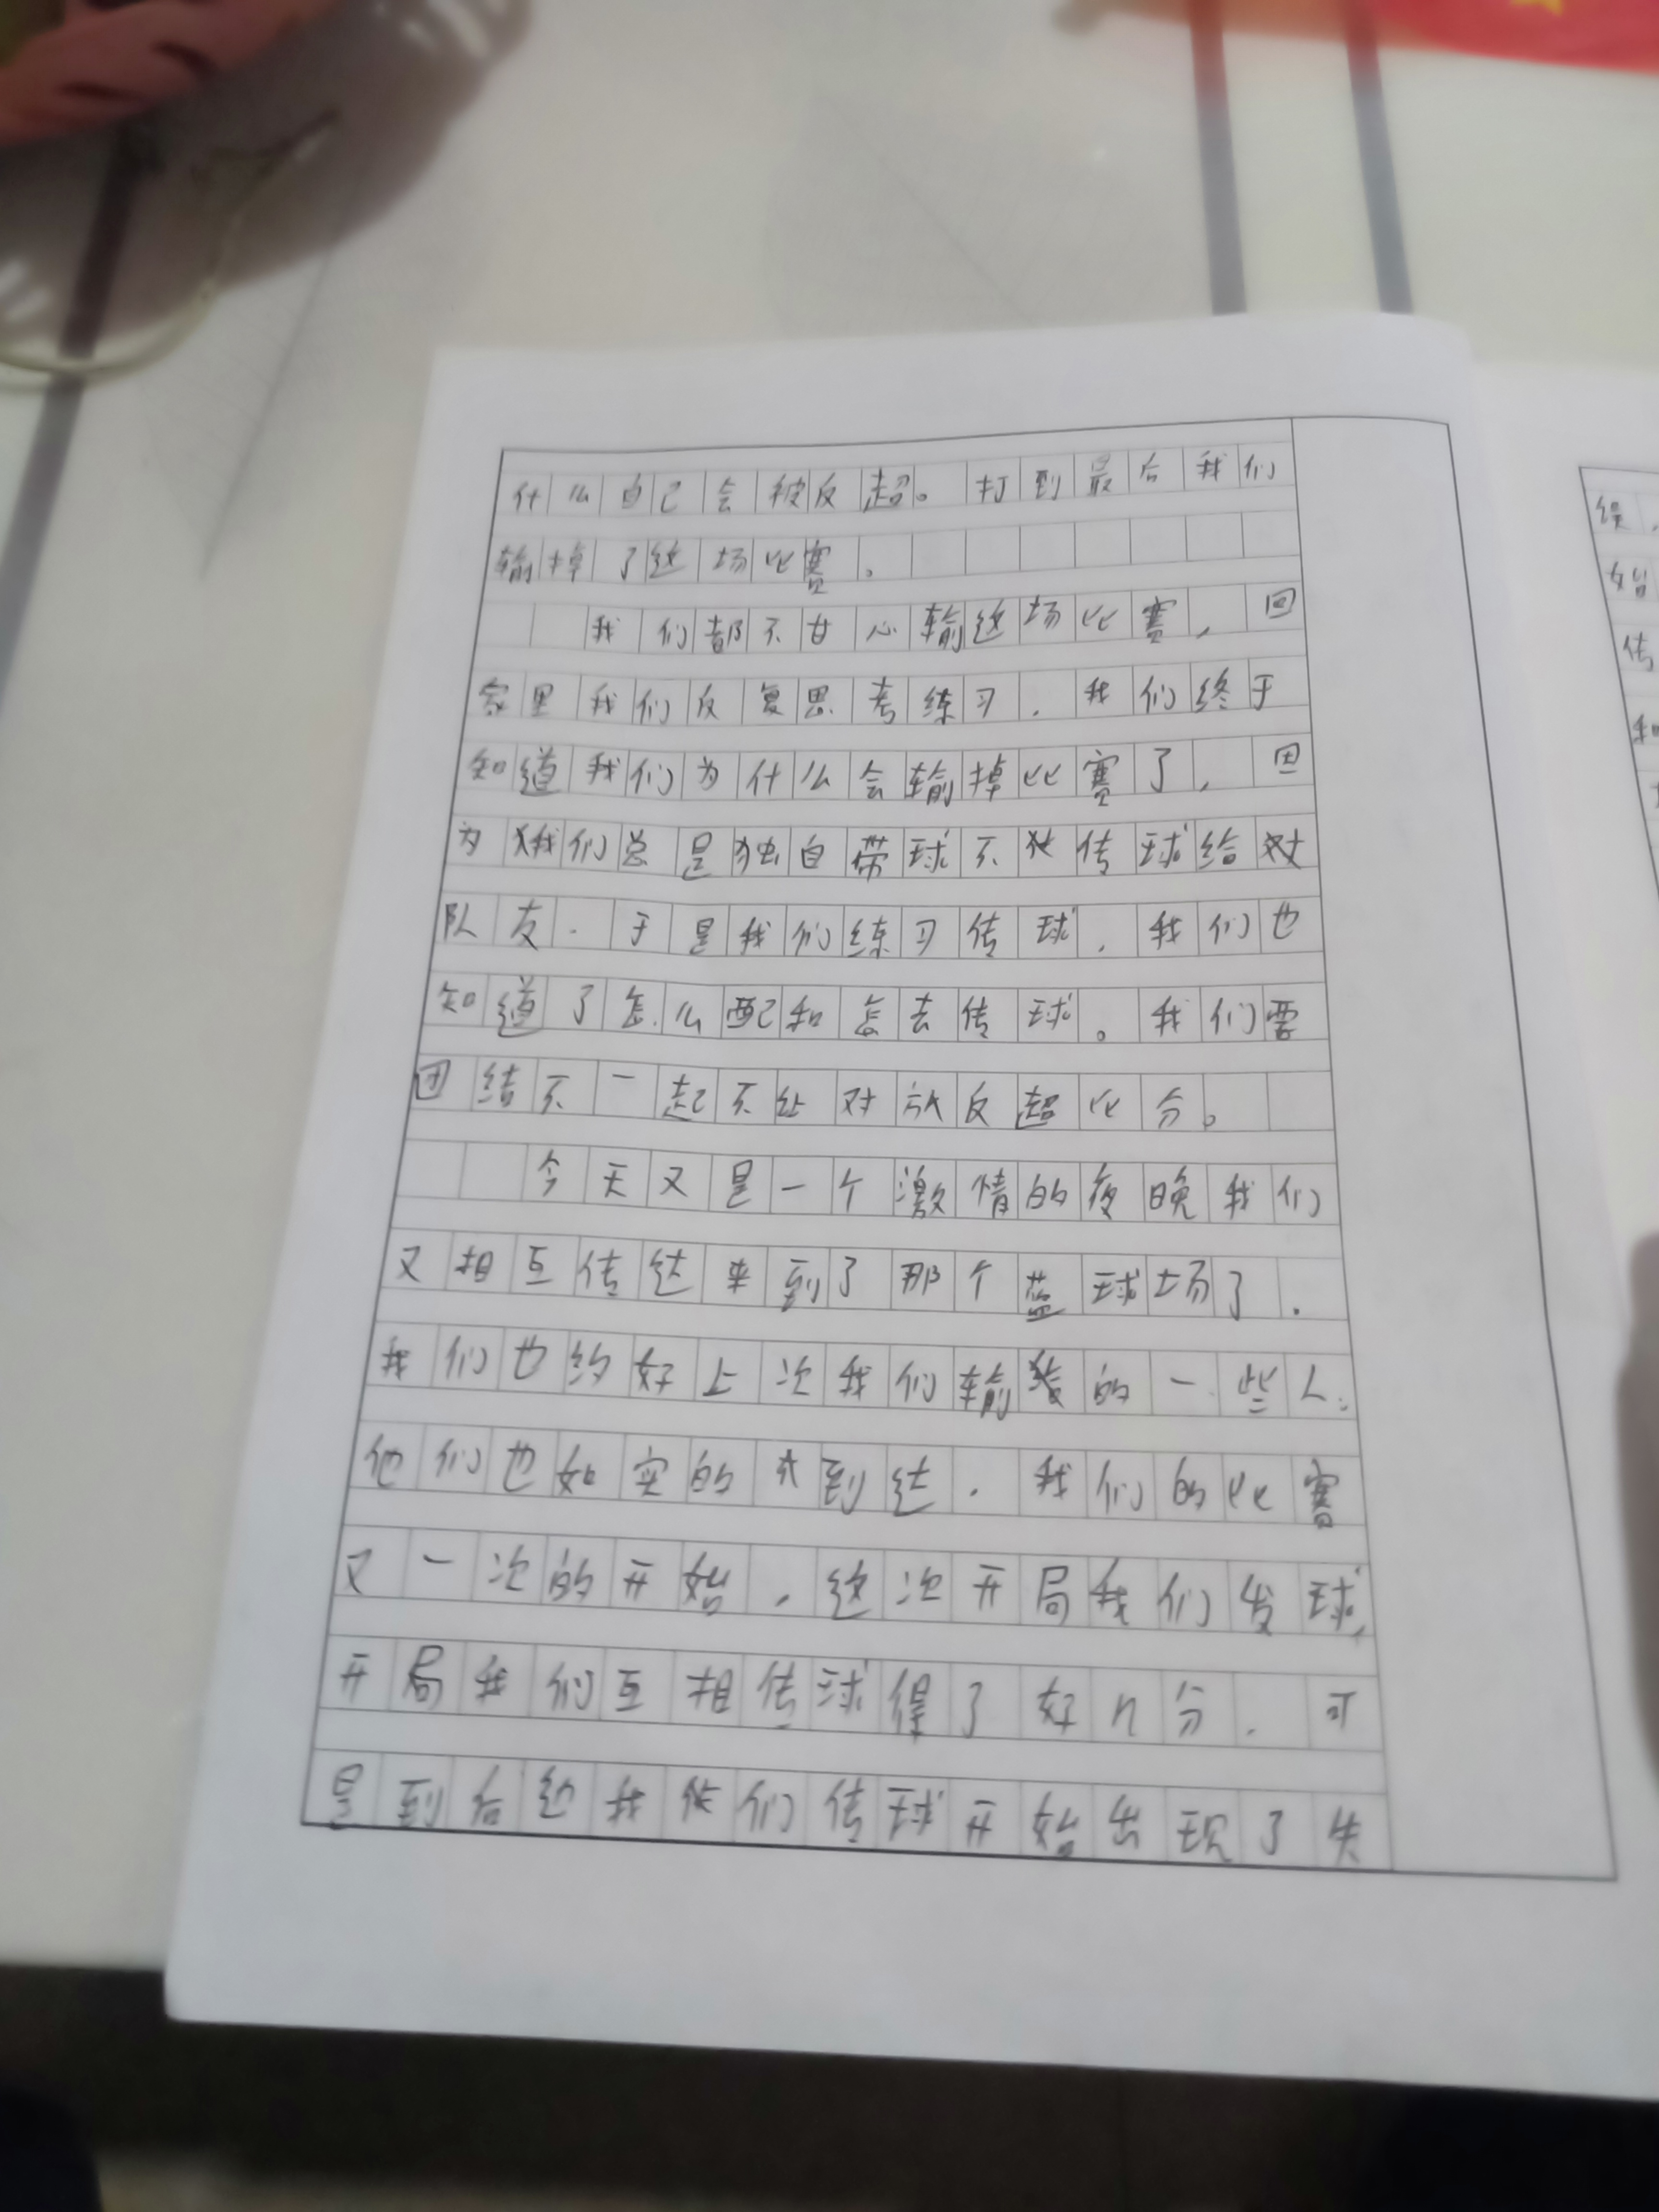 什么自己会被反超。打到最后我们
输掉了这场比赛。
我们都不甘心输这场比赛，回
家里我们反复思考练习，我们终于
知道我们为什么会输掉比赛了，因
为我们总是独自带球不传球给对
队友.于是我们练习传球，我们也
知道了怎么配和怎去传球。我们要
团结不一起不让对放反超比分。
今天又是一个激情的夜晚我们
又相互传达来到了那个蓝球场了.
我们也约好上次我们输的一些人
他们也如实的到达.我们的比赛
又一次的开始，这次开局我们发球，
开局我们互相传球得了好几分.可
是到后边我们传球开始出现了失
误，
始
传
和